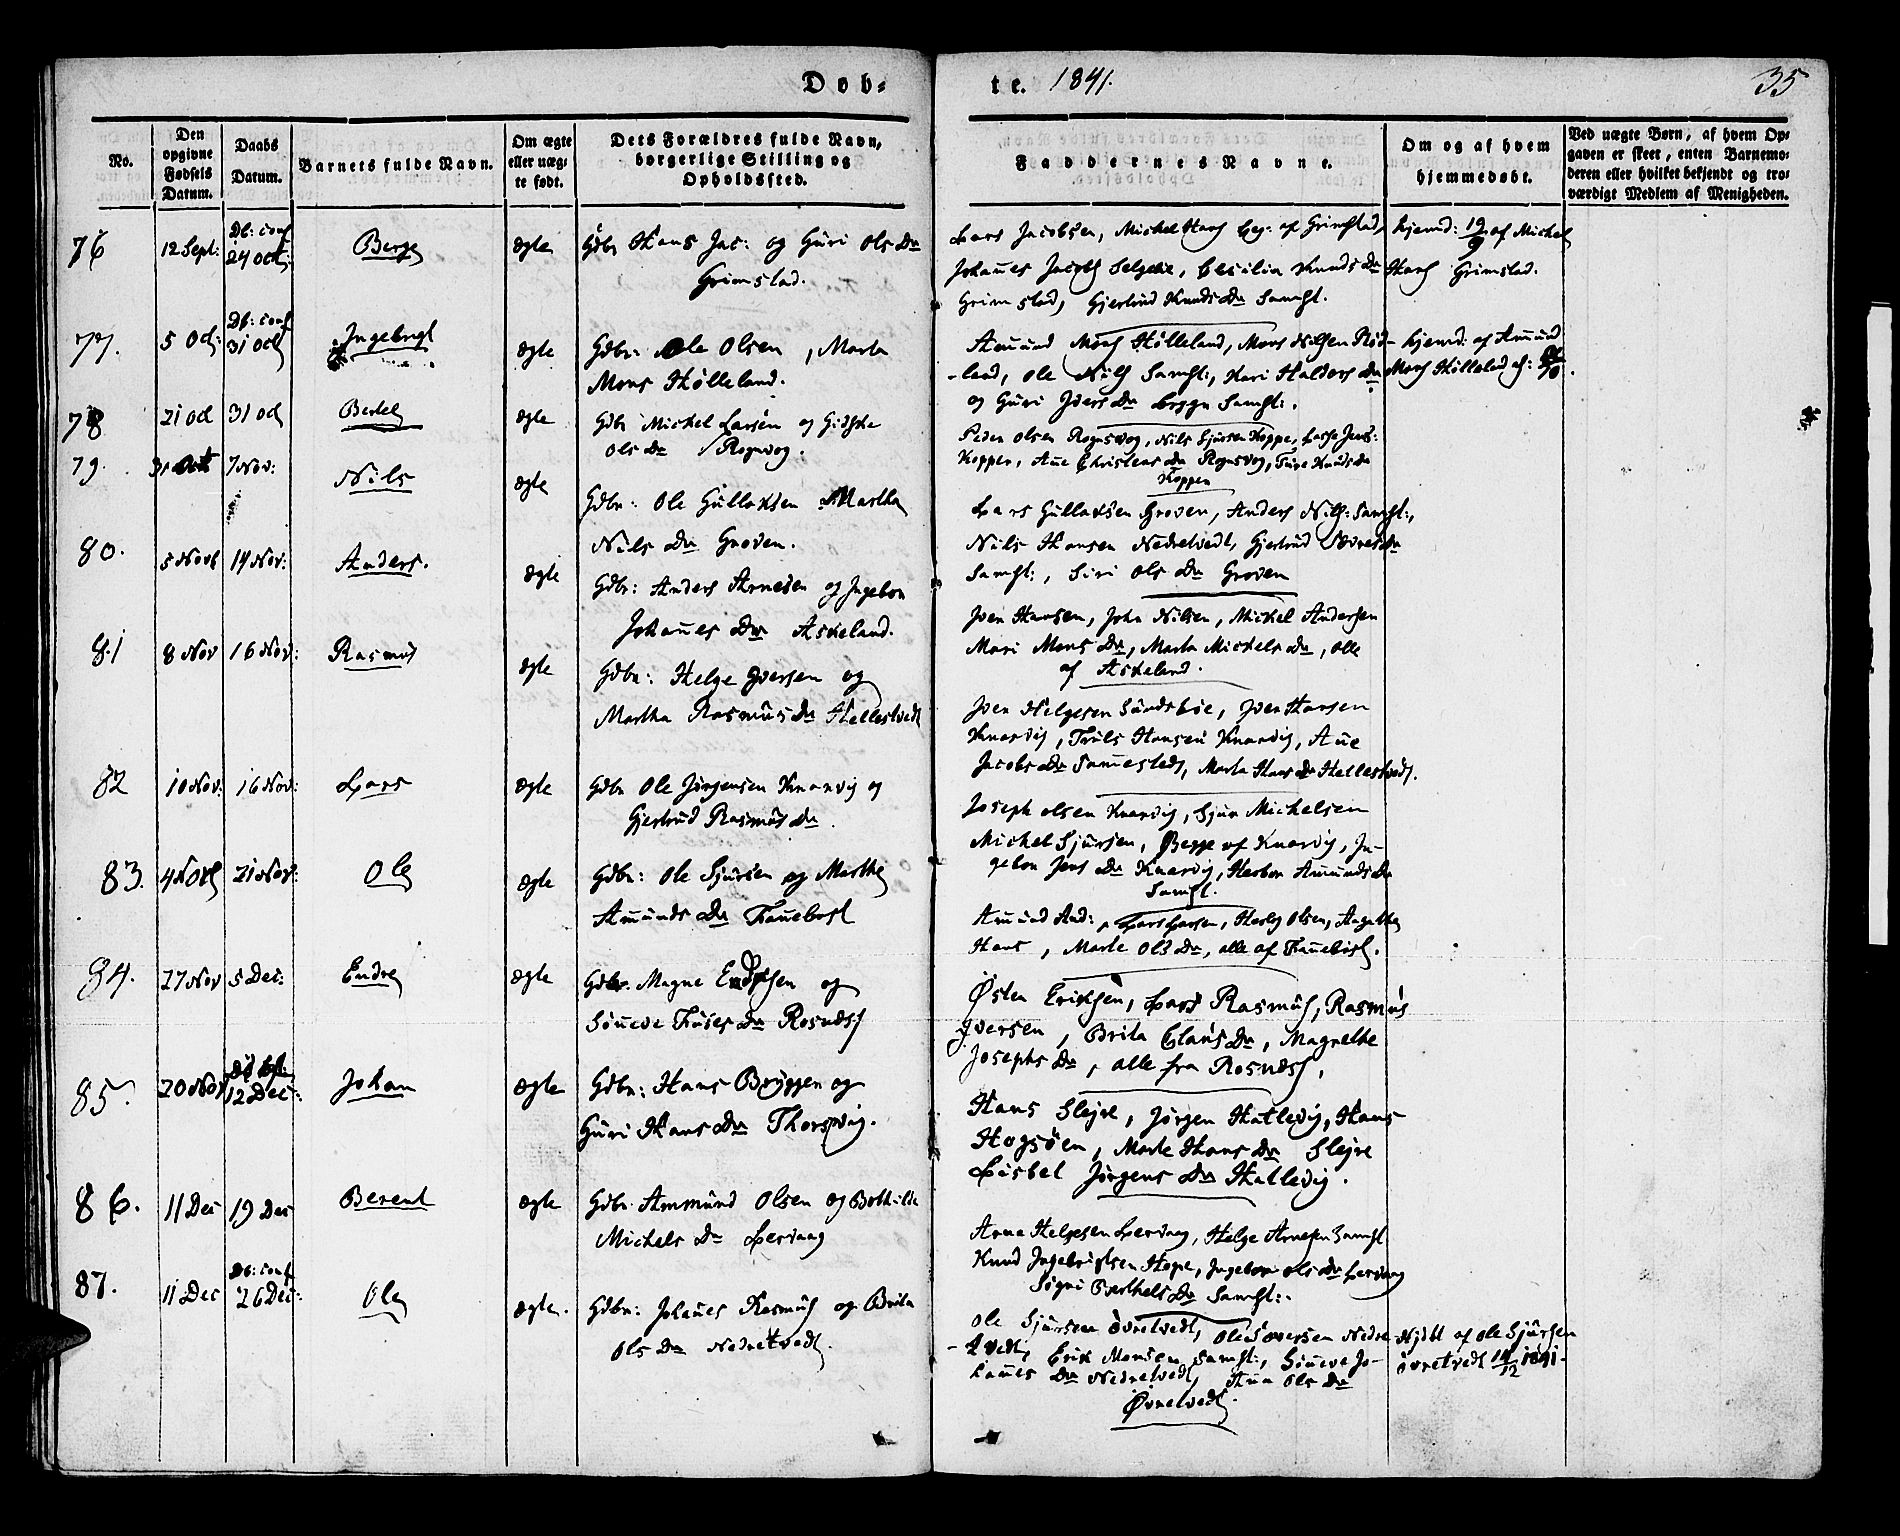 Døb-
te. 1841.
35
No.
Den opgivne Fødsels Datum.
Daabs Datum.
Barnets fulde Navn.
Om ægte eller uæg-
te født.
Dets Forældres fulde Navn,
borgerlige Stilling og
Opholdssted.
Faddernes Navne.
Om og af hvem
hjemmedøbt.
Ved uægte Børn, af hvem Op-
gaven er skeet, enten Barnemo-
deren eller hvilket bekjendt og tro-
værdigt Medlem af Menigheden.
76 12 Sept: Db: conf 24 Oct: Berge ægte Gdbr Hans Jac: og Guri Ols Dr
Grimstad.
Lars Jacobsen, Michel Hans beg: af Grimstad,
Johanes Jacobs Cecilia Knuds Dr
Grimstad, Gjertrud Knuds Dr Samst.
hjemd: 19/9 af Michel
Hans Grimstad.
77. 5 Oct: Db: conf 31 Oct Ingebrigt ægte Gdbr: Ole Olsen, Marta
Mons Hølleland.
Amund Mons Hølleland, Mons Nilsen Rød-
-land, Ole Nils Samst:, Kari Haldors Dr
og Guri Ivers Dr Samst:.
hjemd: af Amund
Mons Hølleland
78 21 Oct 31 Oct Bertel ægte Gdbr Michel Larsen og Gidske
Ols Dr Rognvog.
Peder Olsen Rognsvog, Nils Sjursen Koppe, Lasse Jens:
Koppen, Ane Christens Dr Rognsvog, Knuds Dr
Koppen
79. 31 Oct 7 Nov: Nils ægte Gdbr: Ole Gullaksen Martha
Nils Dr Groven.
Lars Gullaksen Groven, Anders Nils: Samst:,
Nils Hansen Nedretvedt, Gjertrud Dr
Samst:, Siri Ols Dr Groven
80. 5 Novb 14 Nov: Anders. ægte Gdbr: Anders Arnesen og Ingebor
Johanes Dr Askeland.
Iver Hansen, John Nilsen, Michel Andersen
Mari Mons Dr, Marta Michels Dr, alle
af Askeland.
81 8 Nov 16 Nov: Rasmus ægte Gdbr: Helge Iversen og
Martha Rasmus Dr Hellestvedt
Iver Helgesen Sundsbøe, Iver Hansen
Knarvig, Truls Hansen Knarvig, Ane
Jacobs Dr Samested, Marta Hans Dr Hellestvedt.
82 10 Nov: 16 Nov: Lars ægte Gdbr Ole Jørgensen Knarvig og
Gjertrud Rasmus Dr.
Joseph Olsen Knarvig, Sjur Michelsen
Michel Sjursen, Begge af Knarvig, In-
gebor Jens Dr Knarvig, Herbor Amunds Dr
Samst.
83. 4 Nov 21 Nov: Ole ægte Gdbr: Ole Sjursen og Marthe
Amunds Dr Fanebost
Amund And:, Lars Larsen, Olsen, Angathe
Hans, Marte Ols Dr, alle af Fanebost.
84. 27 Nov 5 Dec: Endre ægte Gdbr: Magne Endresen og
Sønneve Dr Rosnæss
Østen Eriksen, Lars Rasmus, Rasmus
Iversen, Brita Claus Dr, Magrethe
Josephs Dr, alle fra Rosnæss.
85. 20 Nov 12 Dec: Johan ægte Gdbr: Hans Bryggen og
Guri Hans Dr Thorsvig.
Hans Slejre, Jørgen Hatlevig, Hans
Høgsøen, Marte Hans Dr Slejre
Lisbet Jørgens Dr Hatlevig.
86. 11 Dec 19 Dec Berent ægte Gdbr. Ammund Olsen og Bothilde
Michels Dr Lervaag
Arne Helgesen Lervaag, Helge Arnesen Samst
Knud Ingebrigtsen Hope, Ingebor Ols Dr Lervaag
Sigri Berthels Dr Samst:.
87. 11 Dec Db: conf 26 Dec: Ole ægte. Gdbr: Johanes Rasmus og Brita
Ols Dr Nedretvedt.
Ole Sjursen Øvretvedt, Ole Soversen Nedre-
-tvedt, Erik Monsen Samst:, Sønneve Jo-
hanes Dr Nedretvedt, Ane Ols Dr
Øvretvedt.
Hjdbt af Ole Sjursen
Øvretvedt 14/12 1841.